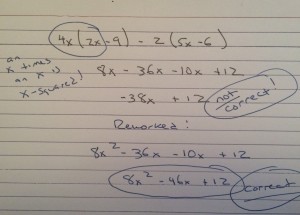 4x(2x-9) - 2(5x-6)
an
x times
an x is
x-squared!
8x - 36x - 10x + 12
-38x + 12 not correct!
Reworked:
8x² - 36x - 10x + 12
8x² - 46x + 12 correct